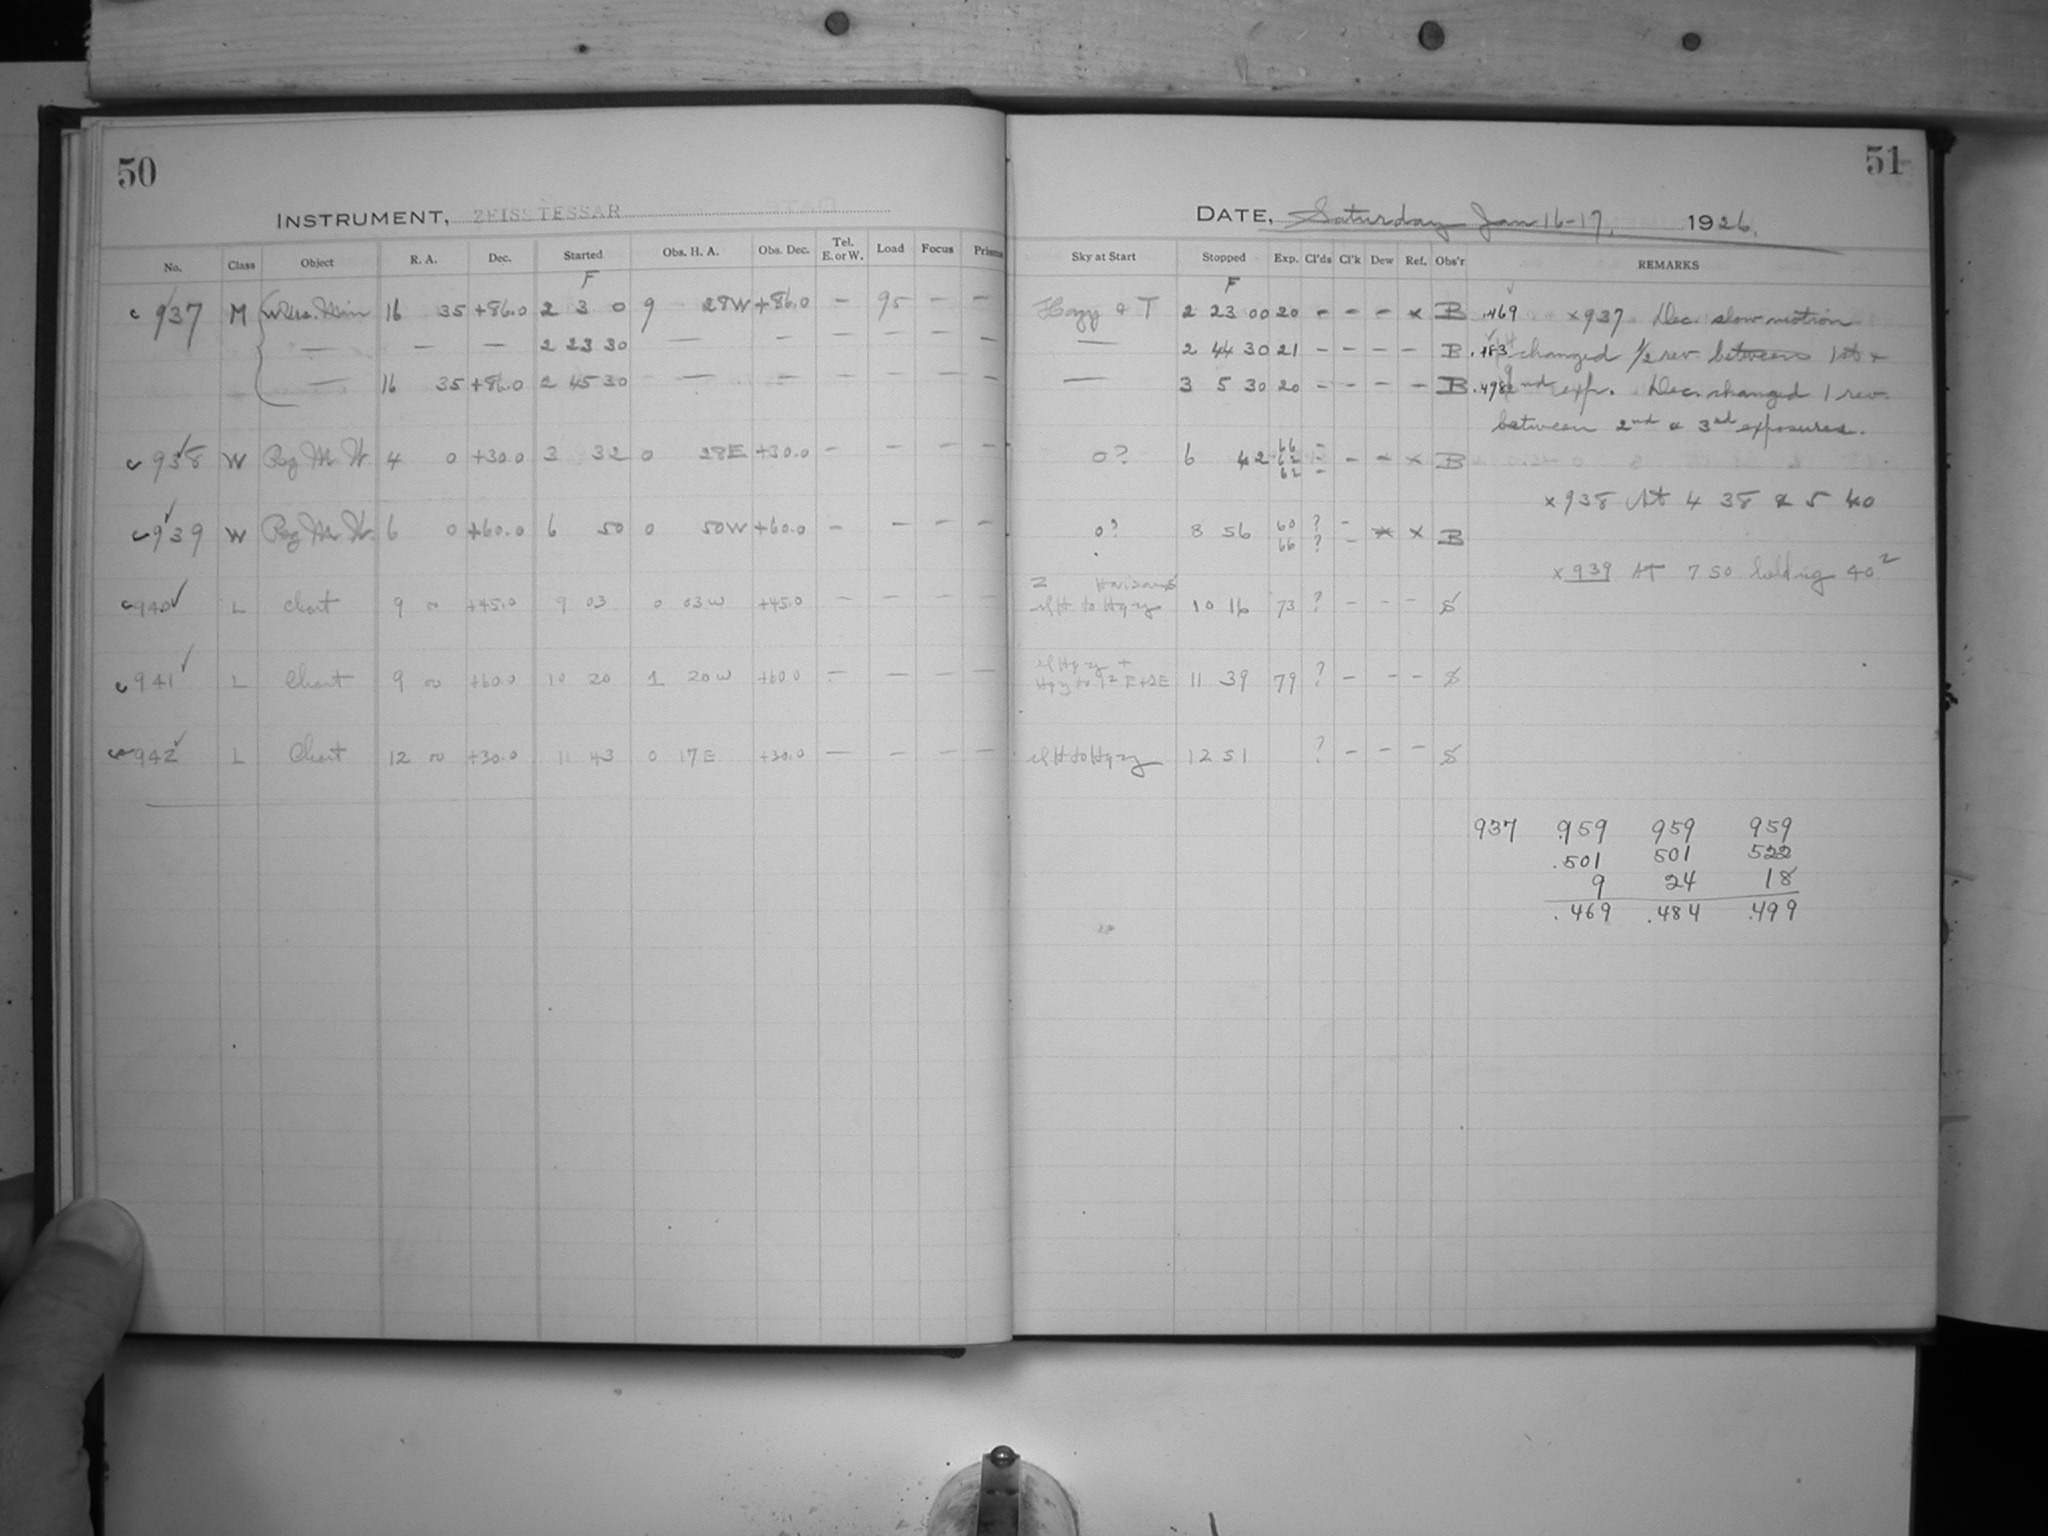 50
INSTRUMENT, ZEISS TESSAR
No. Class Object R. A. Dec. Started Obs. H. A. Obs. Dec. Tel. E. or W. Load Focus Prisms
F
937 M Urs. Min 16 35 +86.0 2 3 0 9 28W +86.0 — 95 — —
— — — 2 23 30 — — — — — —
— 16 35 +86.0 2 45 30 — — — — — —
938 W Reg M W. 4 0 +30.0 3 32 0 28E +30.0 — — — —
939 W Reg M W. 6 0 +60.0 6 50 0 50W +60.0 — — — —
940 L Chart 9 00 +45.0 9 03 0 03W +45.0 — — — —
941 L Chart 9 00 +60.0 10 20 1 20W +60.0 — — — —
942 L Chart 12 00 +30.0 11 43 0 17E +30.0 — — — —
51
DATE, Saturday Jan 16-17, 1926.
Sky at Start Stopped Exp. Cl'ds Cl'k Dew Ref. Obs'r REMARKS
F
Hazy & T 2 23 00 20 - - - x B .469 x937 Dec. slow motion
— 2 44 30 21 - - - - B .483 changed 1/2 rev. between 1st &
— 3 5 30 20 - - - - B .498 2nd exp. Dec. changed 1 rev.
between 2nd & 3rd exposures.
0? 6 42 66 62 62 - - x B
x938 At 4 38 & 5 40
0? 8 56 60 66 ? ? - - x B
x939 At 7 50 holding 40
10 16 73 ? - - - S
11 39 79 ? - - - S
12 51 ? - - - S
937 959 959 959
.501 501 522
9 24 18
.469 .484 .499